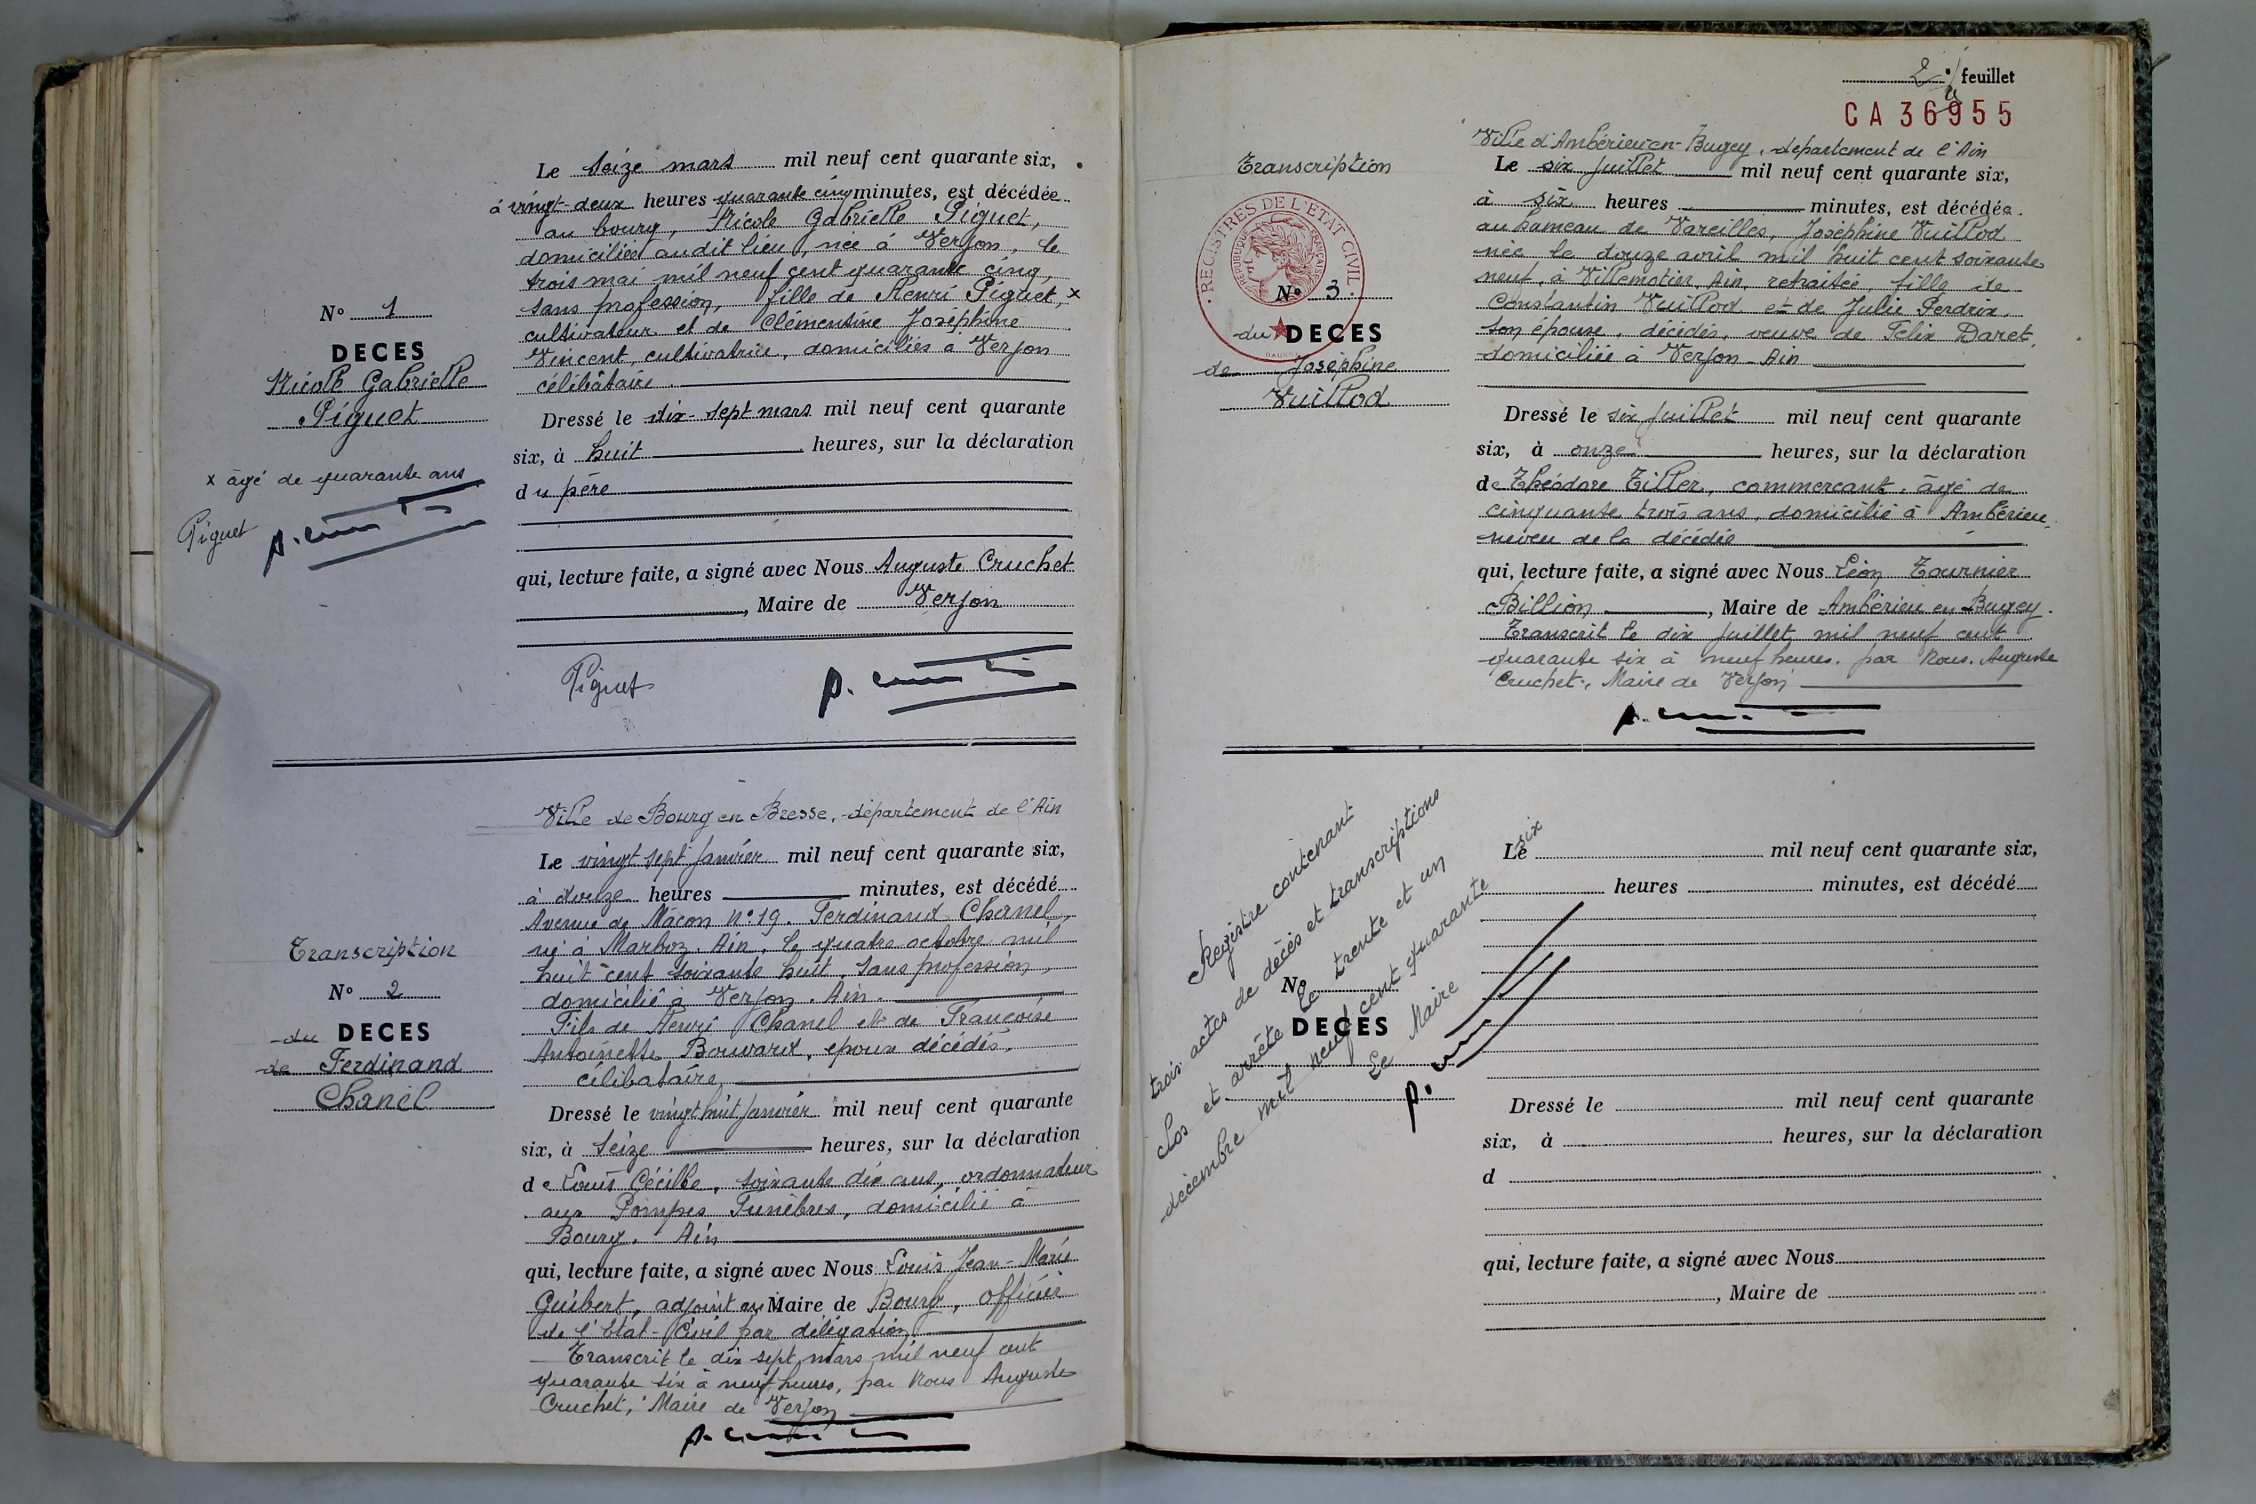 Le seize mars mil neuf cent quarante six,
à vingt-deux heures quarante cinq minutes, est décédée
au bourg, Nicole Gabrielle Piguet,
domiciliée audit lieu, née à Verjon, le
trois mai mil neuf cent quarante cinq,
sans profession, fille de Henri Piguet, x
cultivateur et de Clémentine Joséphine
Vincent, cultivatrice, domiciliés à Verjon
célibataire.
N° 1
DECES
Nicole Gabrielle
Piguet
x âgé de quarante ans
Piguet
Dressé le dix-sept mars mil neuf cent quarante
six, à huit heures, sur la déclaration
du père
qui, lecture faite, a signé avec Nous Auguste Cruchet
, Maire de Verjon
Piguet
Ville de Bourg en Bresse, département de l'Ain
Le vingt sept janvier mil neuf cent quarante six,
à douze heures minutes, est décédé
Avenue de Mâcon N° 19. Ferdinand Chanel,
né à Marboz, Ain, le quatre octobre mil
huit cent soixante huit, sans profession,
domicilié à Verjon, Ain.
Fils de Henri Chanel et de Françoise
Antoinette Bouvard, époux décédés.
célibataire,
Transcription
N° 2
du DECES
de Ferdinand
Chanel
Dressé le vingt huit janvier mil neuf cent quarante
six, à seize heures, sur la déclaration
de Louis Cécille, soixante dix ans, ordonnateur
aux Pompes Funèbres, domicilié à
Bourg. Ain
qui, lecture faite, a signé avec Nous Louis Jean-Marie
Guibert, adjoint au Maire de Bourg, officier
de l'Etat-Civil par délégation
Transcrit le dix sept mars mil neuf cent
quarante six à neuf heures, par Nous Auguste
Cruchet, Maire de Verjon
2e feuillet
CA 36955
Ville d'Ambérieu-en-Bugey, département de l'Ain
Le six juillet mil neuf cent quarante six,
à six heures minutes, est décédée
au hameau de Vareilles, Joséphine Vuillod
née le douze avril mil huit cent soixante
neuf, à Villemotier, Ain, retraitée, fille de
Constantin Vuillod et de Julie Perdrix,
son épouse, décédés, veuve de Félix Daret,
domiciliée à Verjon Ain
Transcription
REGISTRES DE L'ETAT CIVIL
REPUBLIQUE FRANÇAISE
N° 3
du DECES
de Joséphine
Vuillod
Dressé le six juillet mil neuf cent quarante
six, à onze heures, sur la déclaration
de Théodore Tiller, commerçant, âgé de
cinquante trois ans, domicilié à Ambérieu,
neveu de la décédée
qui, lecture faite, a signé avec Nous Léon Tournier
Billion, Maire de Ambérieu en Bugey.
Transcrit le dix juillet mil neuf cent
quarante six à neuf heures. par Nous. Auguste
Cruchet, Maire de Verjon
Registre contenant
trois actes de décès et transcriptions
clos et arrêté le trente et un
décembre mil neuf cent quarante six
Le Maire
N°
DECES
Le mil neuf cent quarante six,
heures minutes, est décédé
Dressé le mil neuf cent quarante
six, à heures, sur la déclaration
d
qui, lecture faite, a signé avec Nous
, Maire de